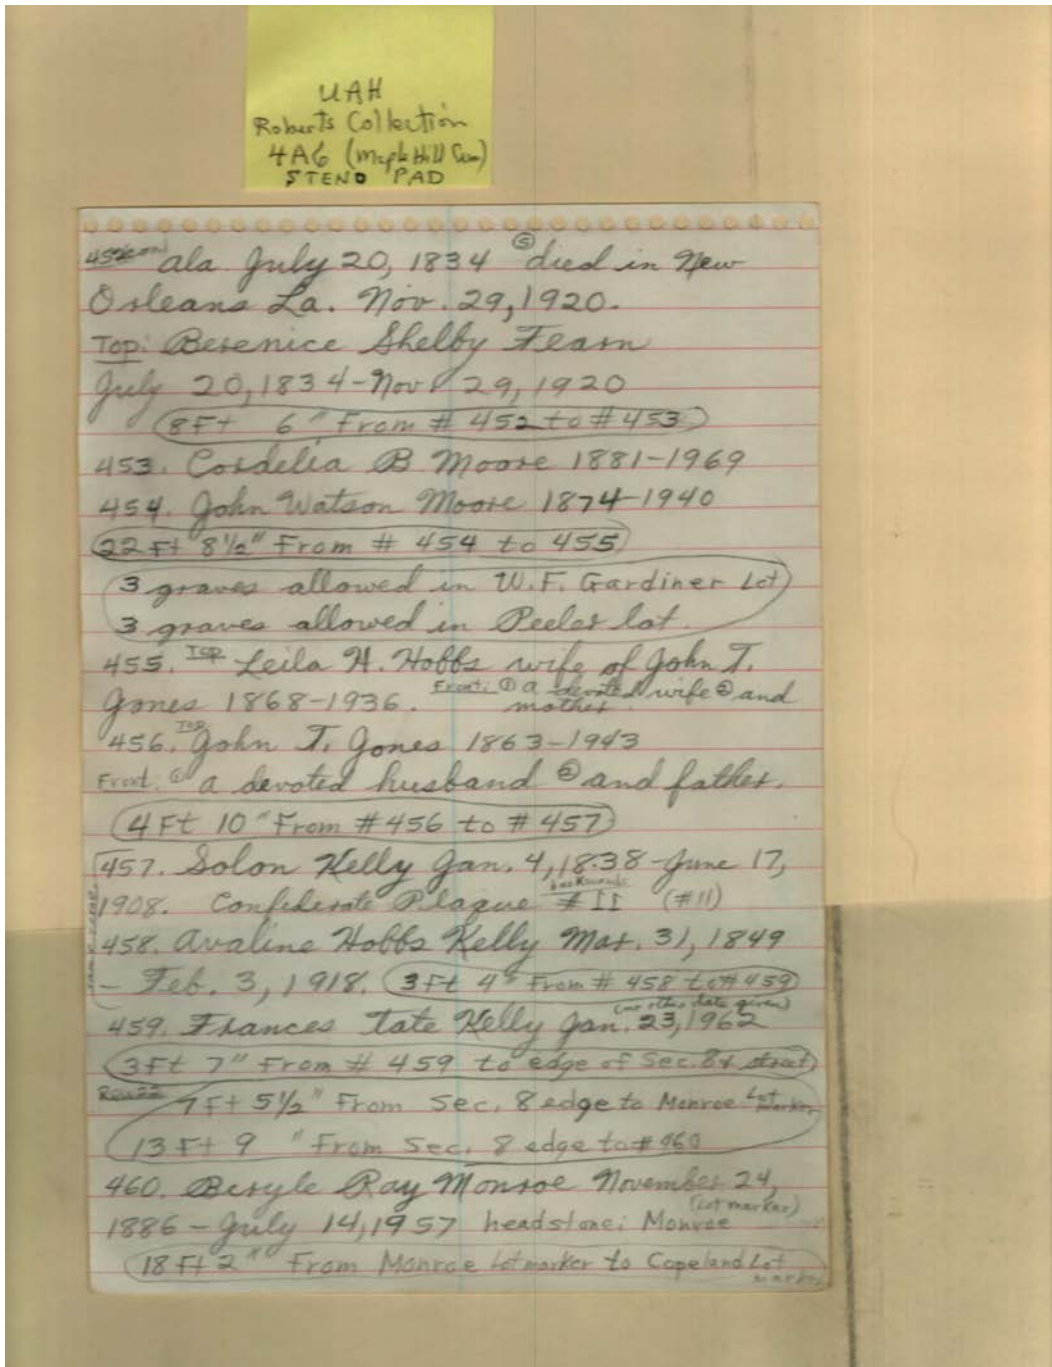 UAH
Roberts Collection
4A6 (Maple Hill Cem)
STENO PAD
452(con) ala. July 20, 1834 ⑤ died in New
Orleans La. Nov. 29, 1920.
Top: Berenice Shelby Fearn
July 20, 1834 - Nov 29, 1920
8Ft 6" From # 452 to # 453
453. Cordelia B Moore 1881-1969
454. John Watson Moore 1874-1940
22 Ft 8½" From # 454 to 455
3 graves allowed in W.F. Gardiner Lot
3 graves allowed in Peeler lot.
455. Top Leila H. Hobbs wife of John T.
Jones 1868-1936. Front: ① a devoted wife ② and
mother.
456. Top John T. Jones 1863-1943
Front: ① a devoted husband ② and father.
4Ft 10" From # 456 to # 457
457. Solon Kelly Jan. 4, 1838 - June 17,
backwards
1908. Confederate Plaque # II (#11)
458. Avaline Hobbs Kelly Mar. 31, 1849
- Feb. 3, 1918. 3Ft 4" From # 458 to # 459
(no other date given)
459. Frances Tate Kelly Jan. 23, 1962
3Ft 7" From # 459 to edge of Sec. 8 + street
Row 22 7Ft 5½" From Sec. 8 edge to Monroe Lot marker
13 Ft 9" From Sec. 8 edge to # 460
460. Beryle Ray Monroe November 24,
(Lot marker)
1886 - July 14, 1957 headstone: Monroe
18 Ft 2" From Monroe Lot marker to Copeland Lot
marker